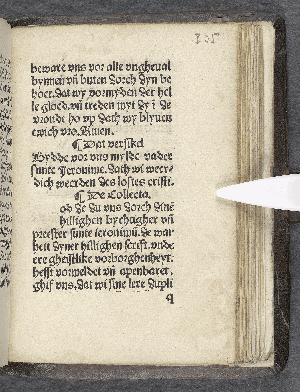 335
beware vns vor alle vngheual
bynnen vñ buten dorch dyn be
hoet. dat wy vormyden der hel
le gloed. vñ treden myt dy i de
vroude ho vp dath wy blyuen
ewich vro. Amen.
¶ Dat versikel
Bydde vor vns mylde vader
sunte Jeronime. Dath wi weer-
dich weerden des loftes cristi.
¶ De Collecta.
od de du vns dorch dinē
hillighen bychtigher vñ
preester sunte ieronimū. de war
heit dyner hillighen scrift. vnde
ere gheistlike vorborghenheyt.
hefft vormeldet vñ apenbaret.
ghif vns. dat wi sine lere dupli
q